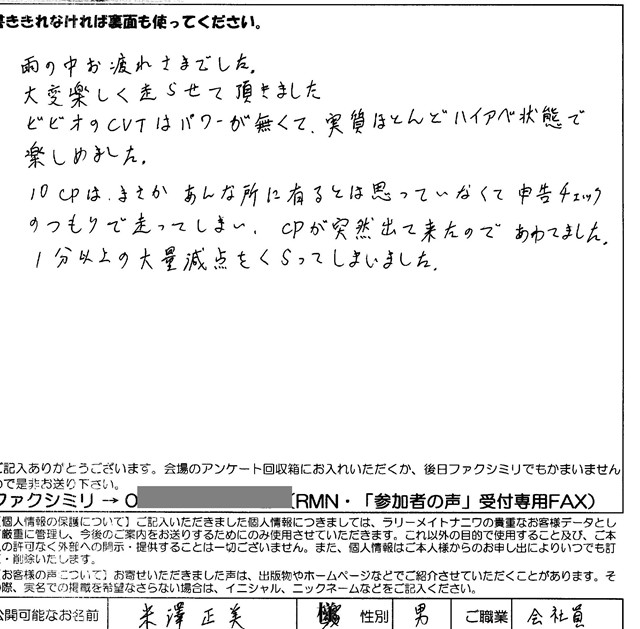 書ききれなければ裏面も使ってください。
雨の中お疲れさまでした。
大変楽しく走らせて頂きました
ビビオのCVTはパワーが無くて、実質ほとんどハイアベ状態で
楽しめました。
10CPは、まさか あんな所に有るとは思っていなくて申告チェック
のつもりで走ってしまい、CPが突然出て来たので あわてました。
1分以上の大量減点をくらってしまいました。
ご記入ありがとうございます。会場のアンケート回収箱にお入れいただくか、後日ファクシミリでもかまいません
ので是非お送り下さい。
ファクシミリ → 0 (RMN・「参加者の声」受付専用FAX)
【個人情報の保護について】ご記入いただきました個人情報につきましては、ラリーメイトナニワの貴重なお客様データとし
て厳重に管理し、今後のご案内をお送りするためにのみ使用させていただきます。これ以外の目的で使用すること及び、ご本
人の許可なく外部への開示・提供することは一切ございません。また、個人情報はご本人様からのお申し出によりいつでも訂
正・削除いたします。
【お客様の声について】お寄せいただきました声は、出版物やホームページなどでご紹介させていただくことがあります。そ
の際、実名での掲載を希望なさらない場合は、イニシャル、ニックネームなどをご記入ください。
公開可能なお名前 米澤 正美 様 性別 男 ご職業 会社員